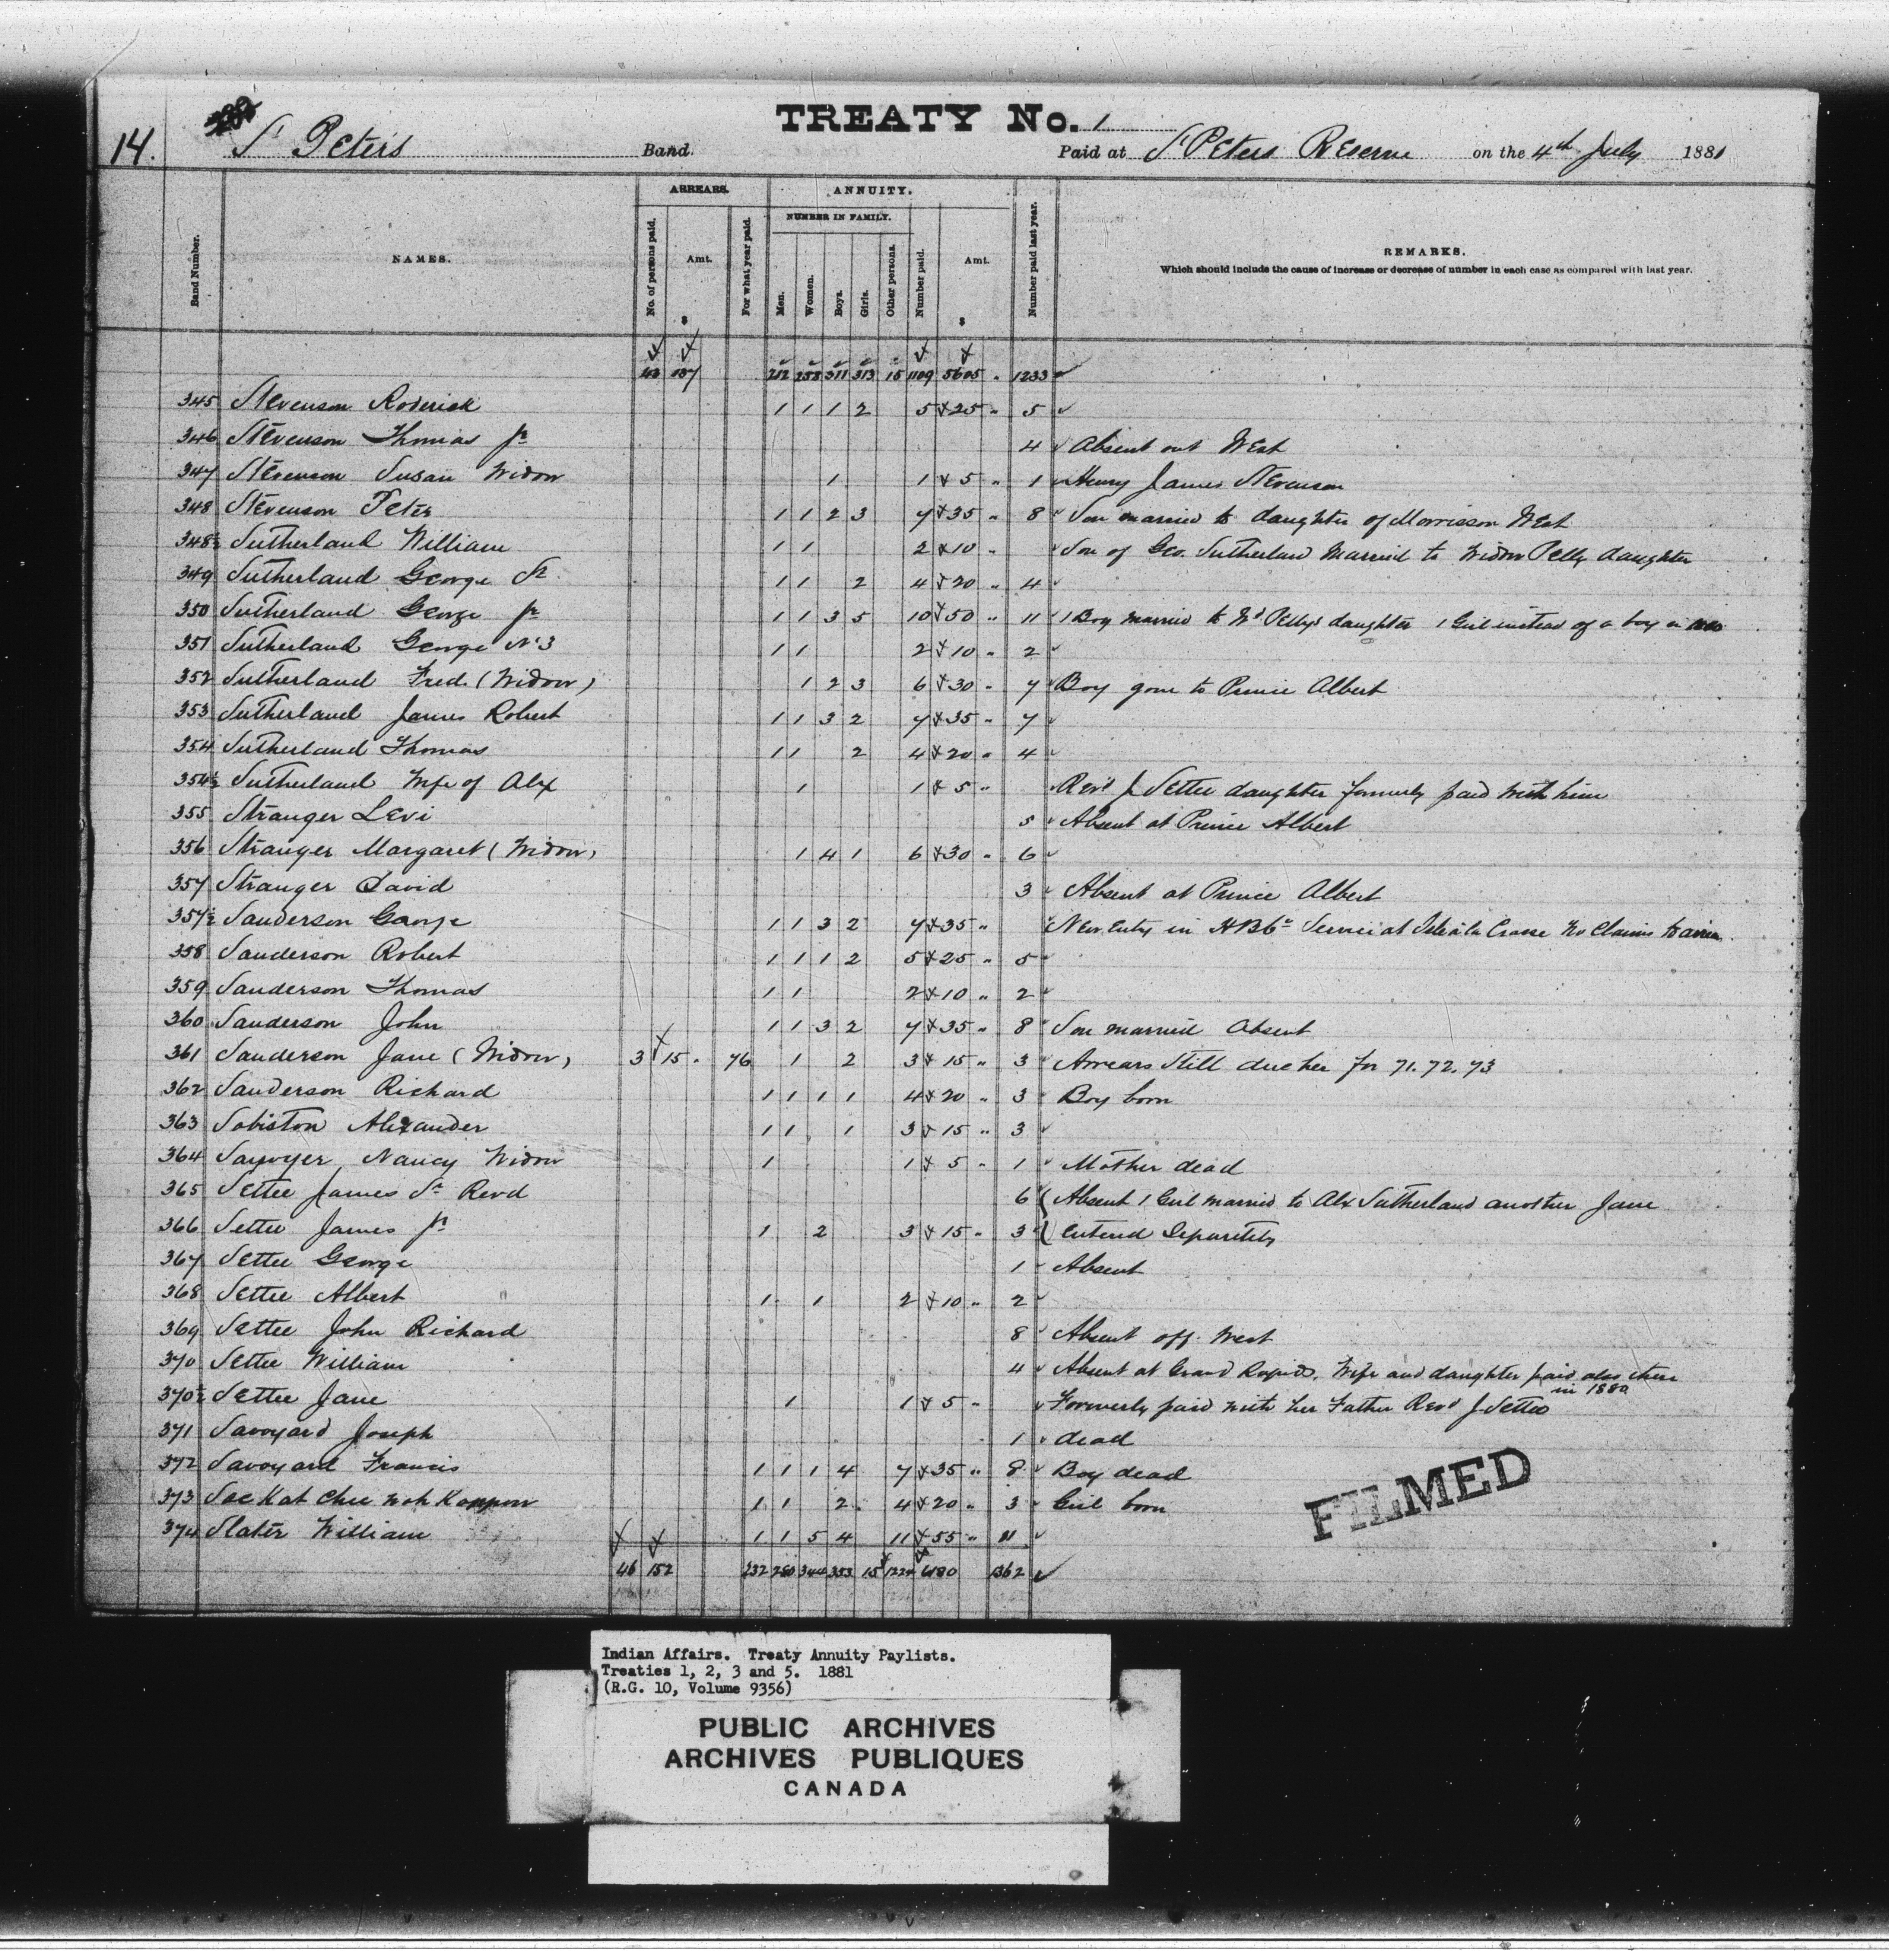 TREATY No. 1
14.
St Peters Band.
Paid at St Peters Reserve on the 4th July 1881
Band Number.
NAMES.
ARREARS.
No. of persons paid.
Amt.
$
For what year paid.
ANNUITY.
NUMBER IN FAMILY.
Men.
Women.
Boys.
Girls.
Other persons.
Number paid.
Amt.
$
Number paid last year.
REMARKS.
Which should include the cause of increase or decrease of number in each case as compared with last year.
43 137 212 258 311 313 15 1109 5605 " 1233
345 Stevenson Roderick 1 1 1 2 5 25 " 5
346 Stevenson Thomas Jr 4 Absent out West
347 Stevenson Susan Widow 1 1 5 " 1 Henry James Stevenson
348 Stevenson Peter 1 1 2 3 7 35 " 8 Son married to daughter of Morrisson West
348½ Sutherland William 1 1 2 10 " Son of Geo. Sutherland married to Widow Pelly daughter
349 Sutherland George Sr 1 1 2 4 20 " 4
350 Sutherland George Jr 1 1 3 5 10 50 " 11 1 Boy married to Wd Pellys daughter 1 Girl instead of a boy in 1880
351 Sutherland George No 3 1 1 2 10 " 2
352 Sutherland Fred. (Widow) 1 2 3 6 30 " 7 Boy gone to Prince Albert
353 Sutherland James Robert 1 1 3 2 7 35 " 7
354 Sutherland Thomas 1 1 2 4 20 " 4
354½ Sutherland Wife of Alex 1 1 5 " Revd J Settee daughter formerly paid with him
355 Stranger Levi 5 Absent at Prince Albert
356 Stranger Margaret (Widow) 1 4 1 6 30 " 6
357 Stranger David 3 Absent at Prince Albert
357½ Sanderson George 1 1 3 2 7 35 " New Entry in HBCo Service at Isle à la Crosse No Claims to arrears
358 Sanderson Robert 1 1 1 2 5 25 " 5
359 Sanderson Thomas 1 1 2 10 " 2
360 Sanderson John 1 1 3 2 7 35 " 8 Son married Absent
361 Sanderson Jane (Widow) 3 15 " 76 1 2 3 15 " 3 Arrears Still due her for 71. 72. 73
362 Sanderson Richard 1 1 1 1 4 20 " 3 Boy born
363 Sobiston Alexander 1 1 1 3 15 " 3
364 Sawyer, Nancy Widow 1 1 5 " 1 Mother dead
365 Settee James Sr Revd 6 Absent 1 Girl married to Alex Sutherland another Jane
366 Settee James Jr 1 2 3 15 " 3 entered Separately
367 Settee George 1 Absent
368 Settee Albert " 1 1 2 10 " 2
369 Settee John Richard 8 Absent off West
370 Settee William 4 Absent at Grand Rapids. Wife and daughter paid also there in 1880
370½ Settee Jane 1 1 5 " Formerly paid with her Father Revd J Settee
371 Savoyard Joseph 1 dead
372 Savoyard Francis 1 1 1 4 7 35 " 8 Boy dead
373 Sac Kat chee woh Kappow 1 1 2 4 20 " 3 Girl born
374 Slater William 1 1 5 4 11 55 " 11
46 152 232 280 344 353 15 1224 6180 1362
FILMED
Indian Affairs. Treaty Annuity Paylists.
Treaties 1, 2, 3 and 5. 1881
(R.G. 10, Volume 9356)
PUBLIC ARCHIVES
ARCHIVES PUBLIQUES
CANADA